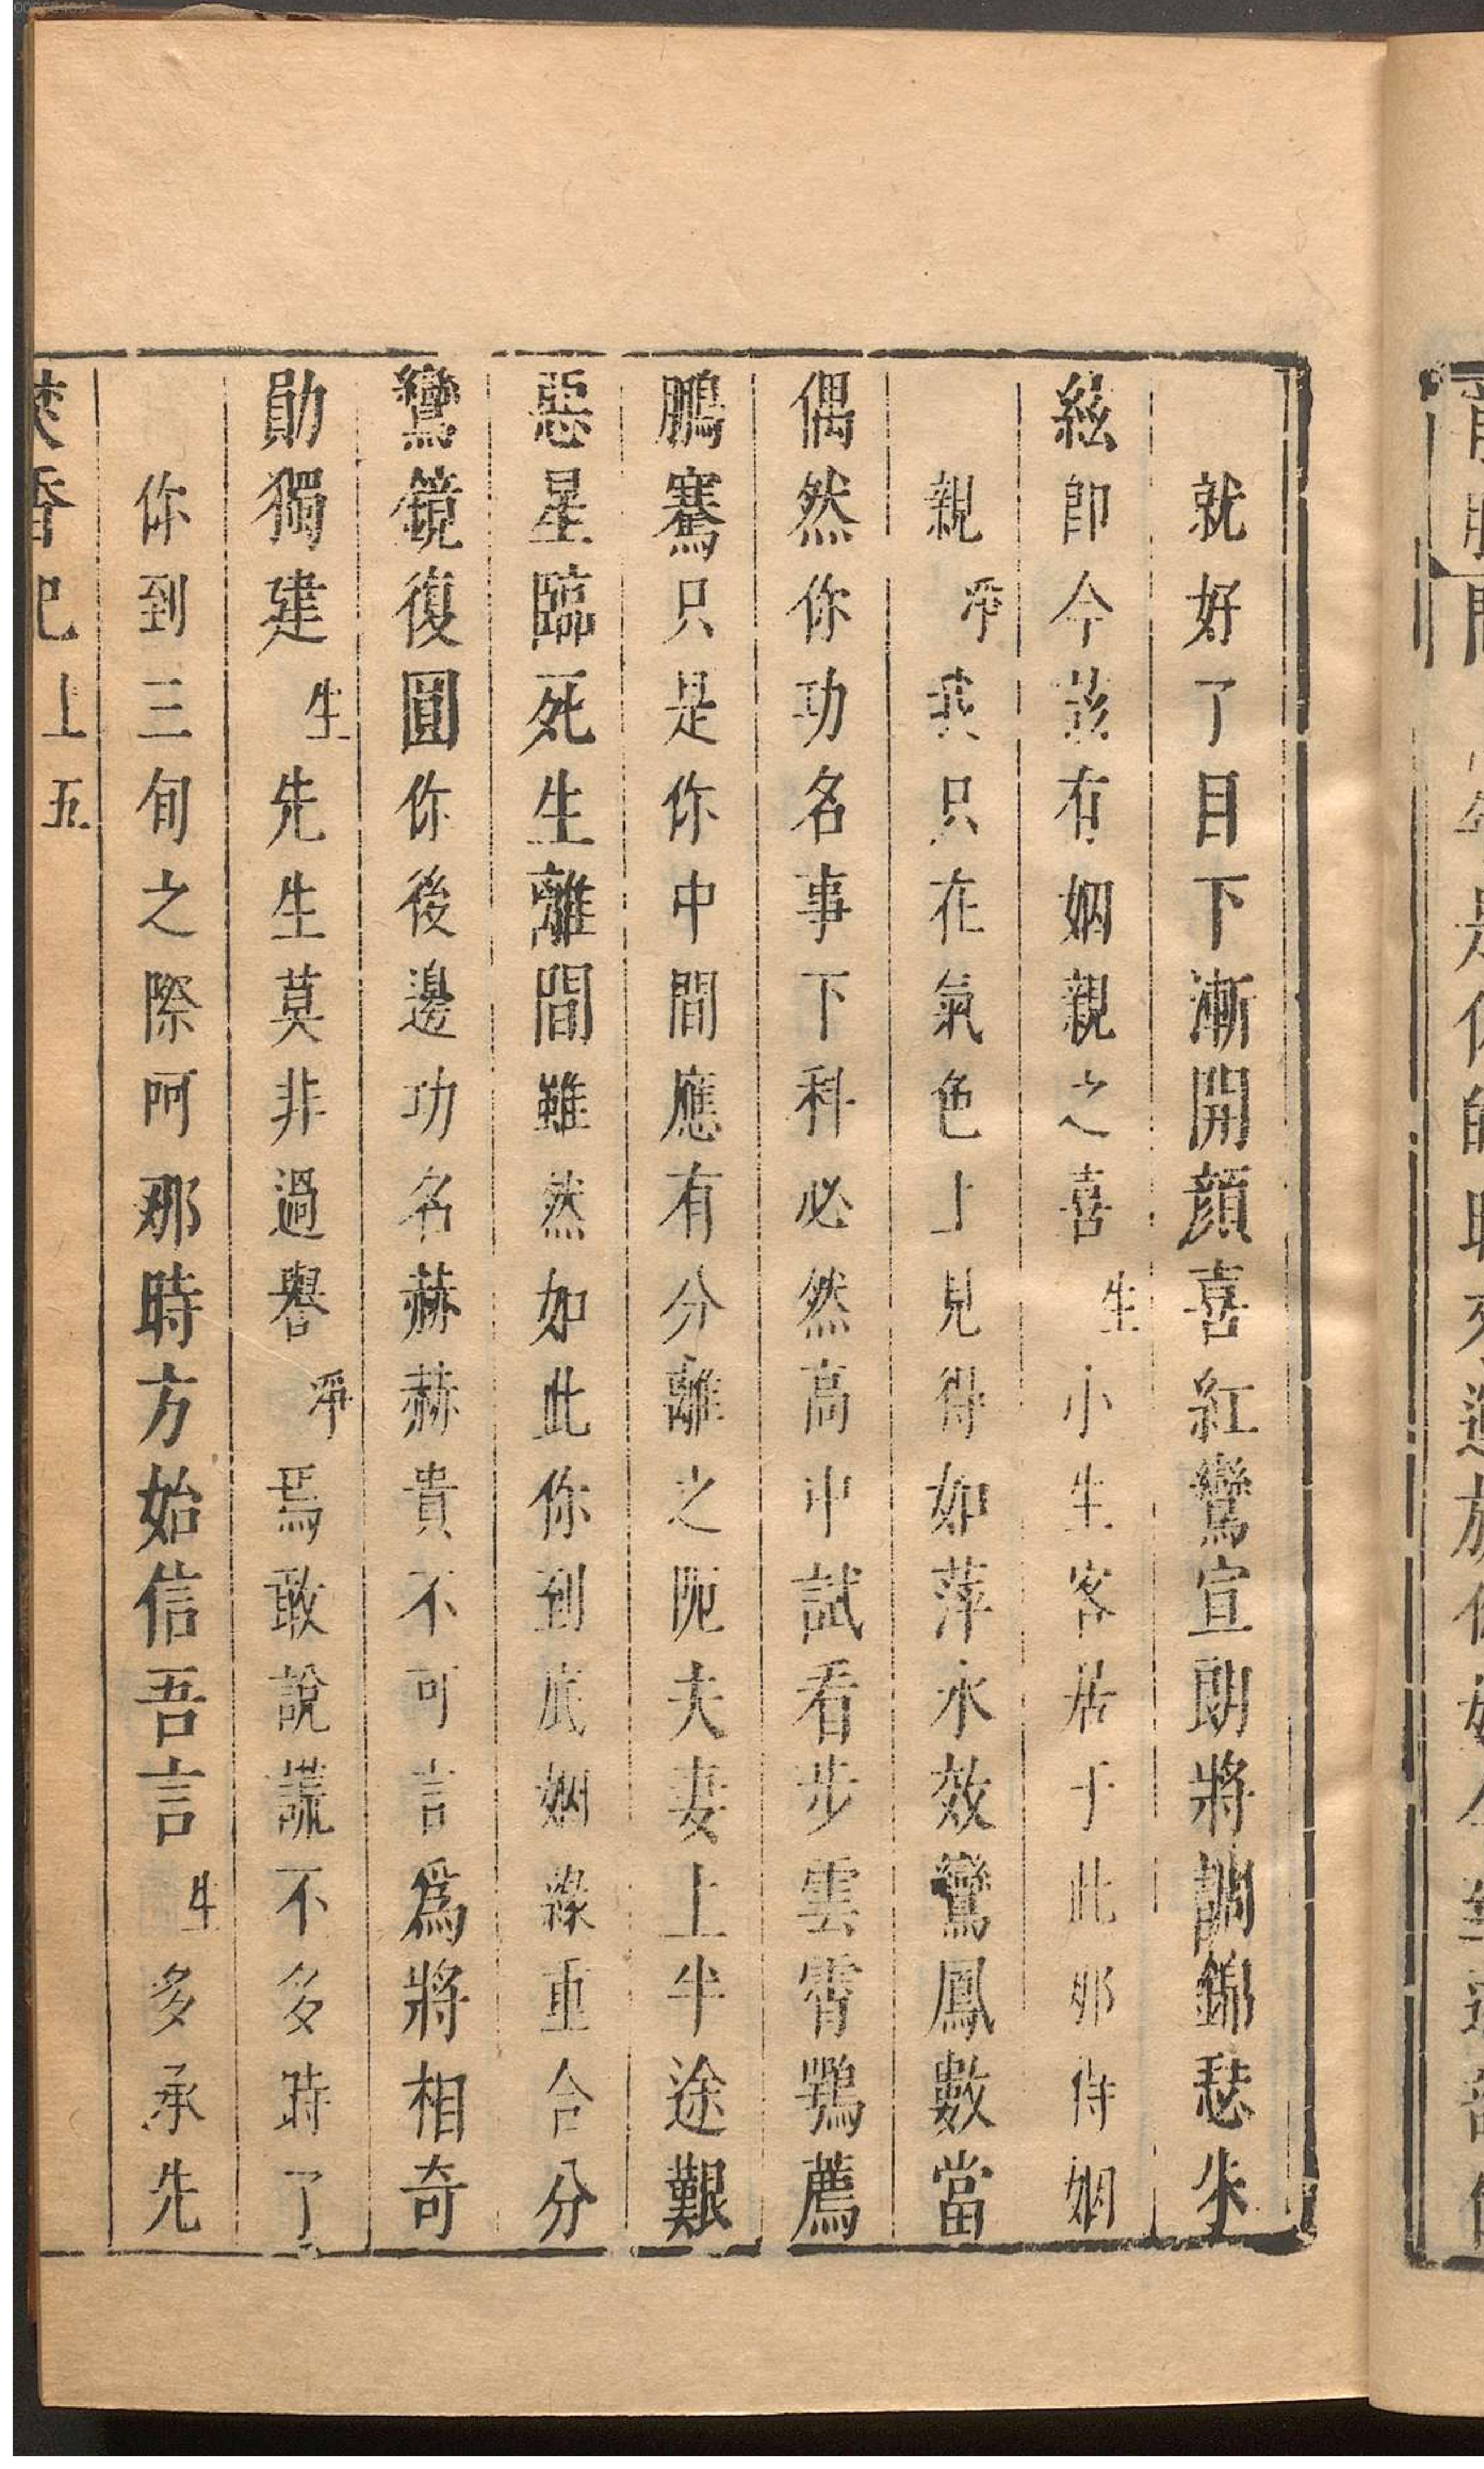 就好了目下漸開顏喜紅鸞宣朗將調錦瑟朱
絃即今該有姻親之喜生小生客居于此那得姻
親淨我只在氣色上見得如萍水效鸞鳳數當
偶然你功名事下科必然高中試看步雲霄鶚薦
鵬騫只是你中間應有分離之阨夫妻上半途艱
惡星臨死生離間雖然如此你到底姻緣重合分
鸞鏡復圓你後邊功名赫赫貴不可言爲將相奇
勛獨建生先生莫非過譽淨焉敢說謊不多時了
你到三旬之際呵那時方始信吾言生多承先
香記上 五